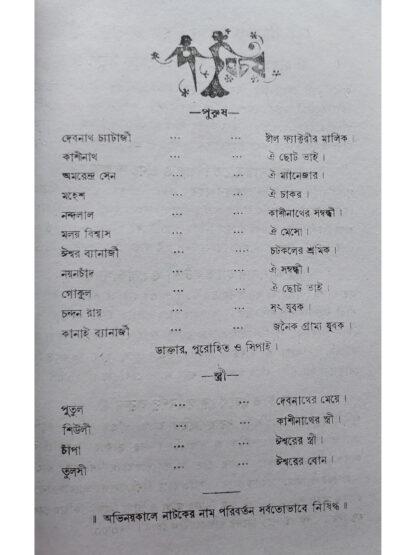 পরিচয়
—পুরুষ—
দেবনাথ চ্যাটার্জী ... ... ষ্টীল ফ্যাক্টরীর মালিক।
কাশীনাথ ... ... ঐ ছোট ভাই।
অমরেন্দ্র সেন ... ... ঐ ম্যানেজার।
মহেশ ... ... ঐ চাকর।
নন্দলাল ... ... কাশীনাথের সম্বন্ধী।
মলয় বিশ্বাস ... ... ঐ মেসো।
ঈশ্বর ব্যানার্জী ... ... চটকলের শ্রমিক।
নয়নচাঁদ ... ... ঐ সম্বন্ধী।
গোকুল ... ... ঐ ছোট ভাই।
চন্দন রায় ... ... সৎ যুবক।
কানাই ব্যানার্জী ... ... জনৈক গ্রাম্য যুবক।
ডাক্তার, পুরোহিত ও সিপাই।
—স্ত্রী—
পুতুল ... ... দেবনাথের মেয়ে।
শিউলী ... ... কাশীনাথের স্ত্রী।
চাঁপা ... ... ঈশ্বরের স্ত্রী।
তুলসী ... ... ঈশ্বরের বোন।
॥ অভিনয়কালে নাটকের নাম পরিবর্তন সর্বতোভাবে নিষিদ্ধ ॥